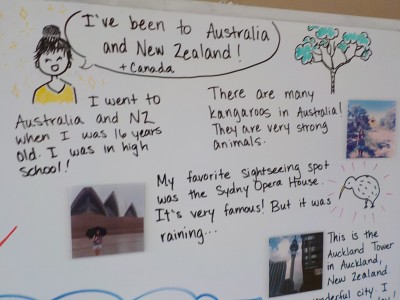 I've been to Australia
and New Zealand!
+ Canada
I went to
Australia and NZ
when I was 16 years
old. I was in high
school!
There are many
kangaroos in Australia!
They are very strong
animals.
My favorite sightseeing spot
was the Sydny Opera House.
It's very famous! But it was
raining...
This is the
Auckland Tower
in Auckland,
New Zealand.
wonderful city. I